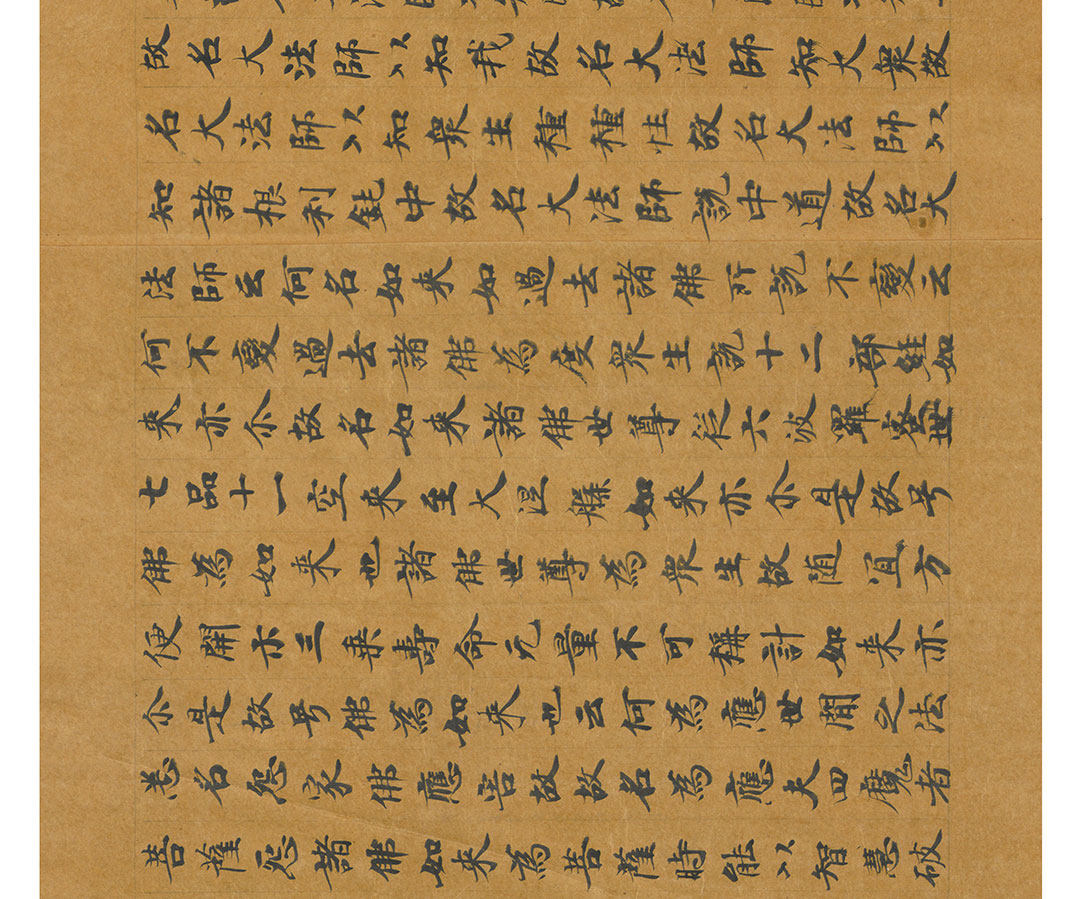 故名大法師以知我故名大法師知大衆故
名大法師以知衆生種種性故名大法師以
知諸根利鈍中故名大法師說中道故名大
法師云何名如来如過去諸佛所說不變云
何不變過去諸佛為度衆生說十二部經如
来亦尒故名如来諸佛世尊從六波羅蜜卅
七品十一空来至大涅槃如来亦尒是故号
佛為如来也諸佛世尊為衆生故随宜方
便開示三乗壽命无量不可稱計如来亦
尒是故号佛為如来也云何為應世間之法
悉名怨家佛應害故故名為應夫四魔者
菩薩怨諸佛如来為菩薩時能以智慧破